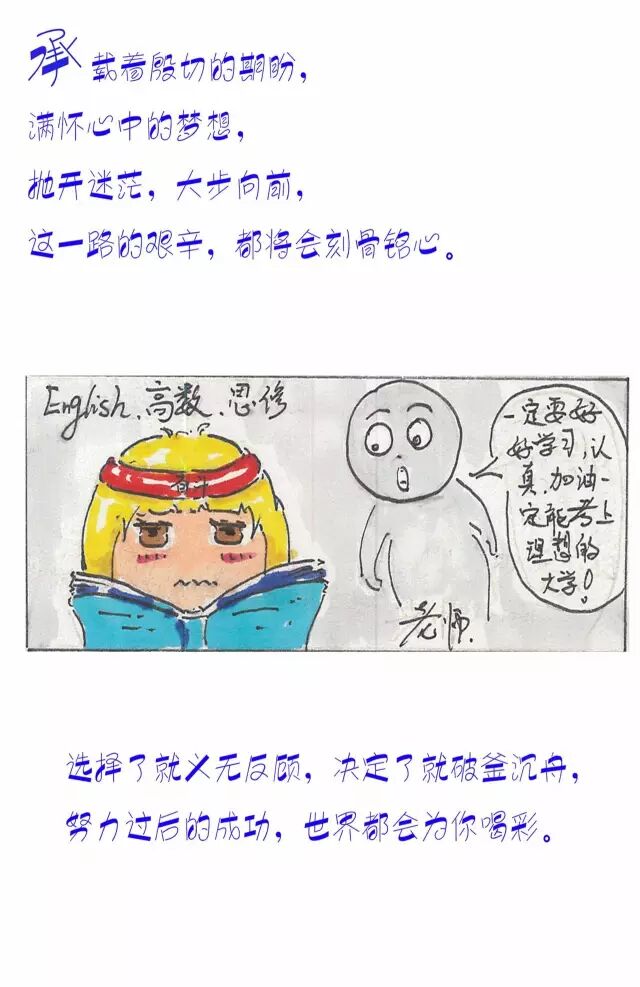 承载着殷切的期盼，
满怀心中的梦想，
抛开迷茫，大步向前，
这一路的艰辛，都将会刻骨铭心。
English、高数、思修
奋斗
一定要好
好学习,认
真,加油一
定能考上
理想的
大学！
老师.
选择了就义无反顾，决定了就破釜沉舟，
努力过后的成功，世界都会为你喝彩。